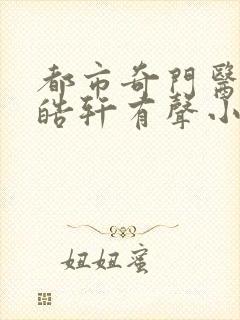 都市奇門醫
皓軒有聲小
妞妞蜜